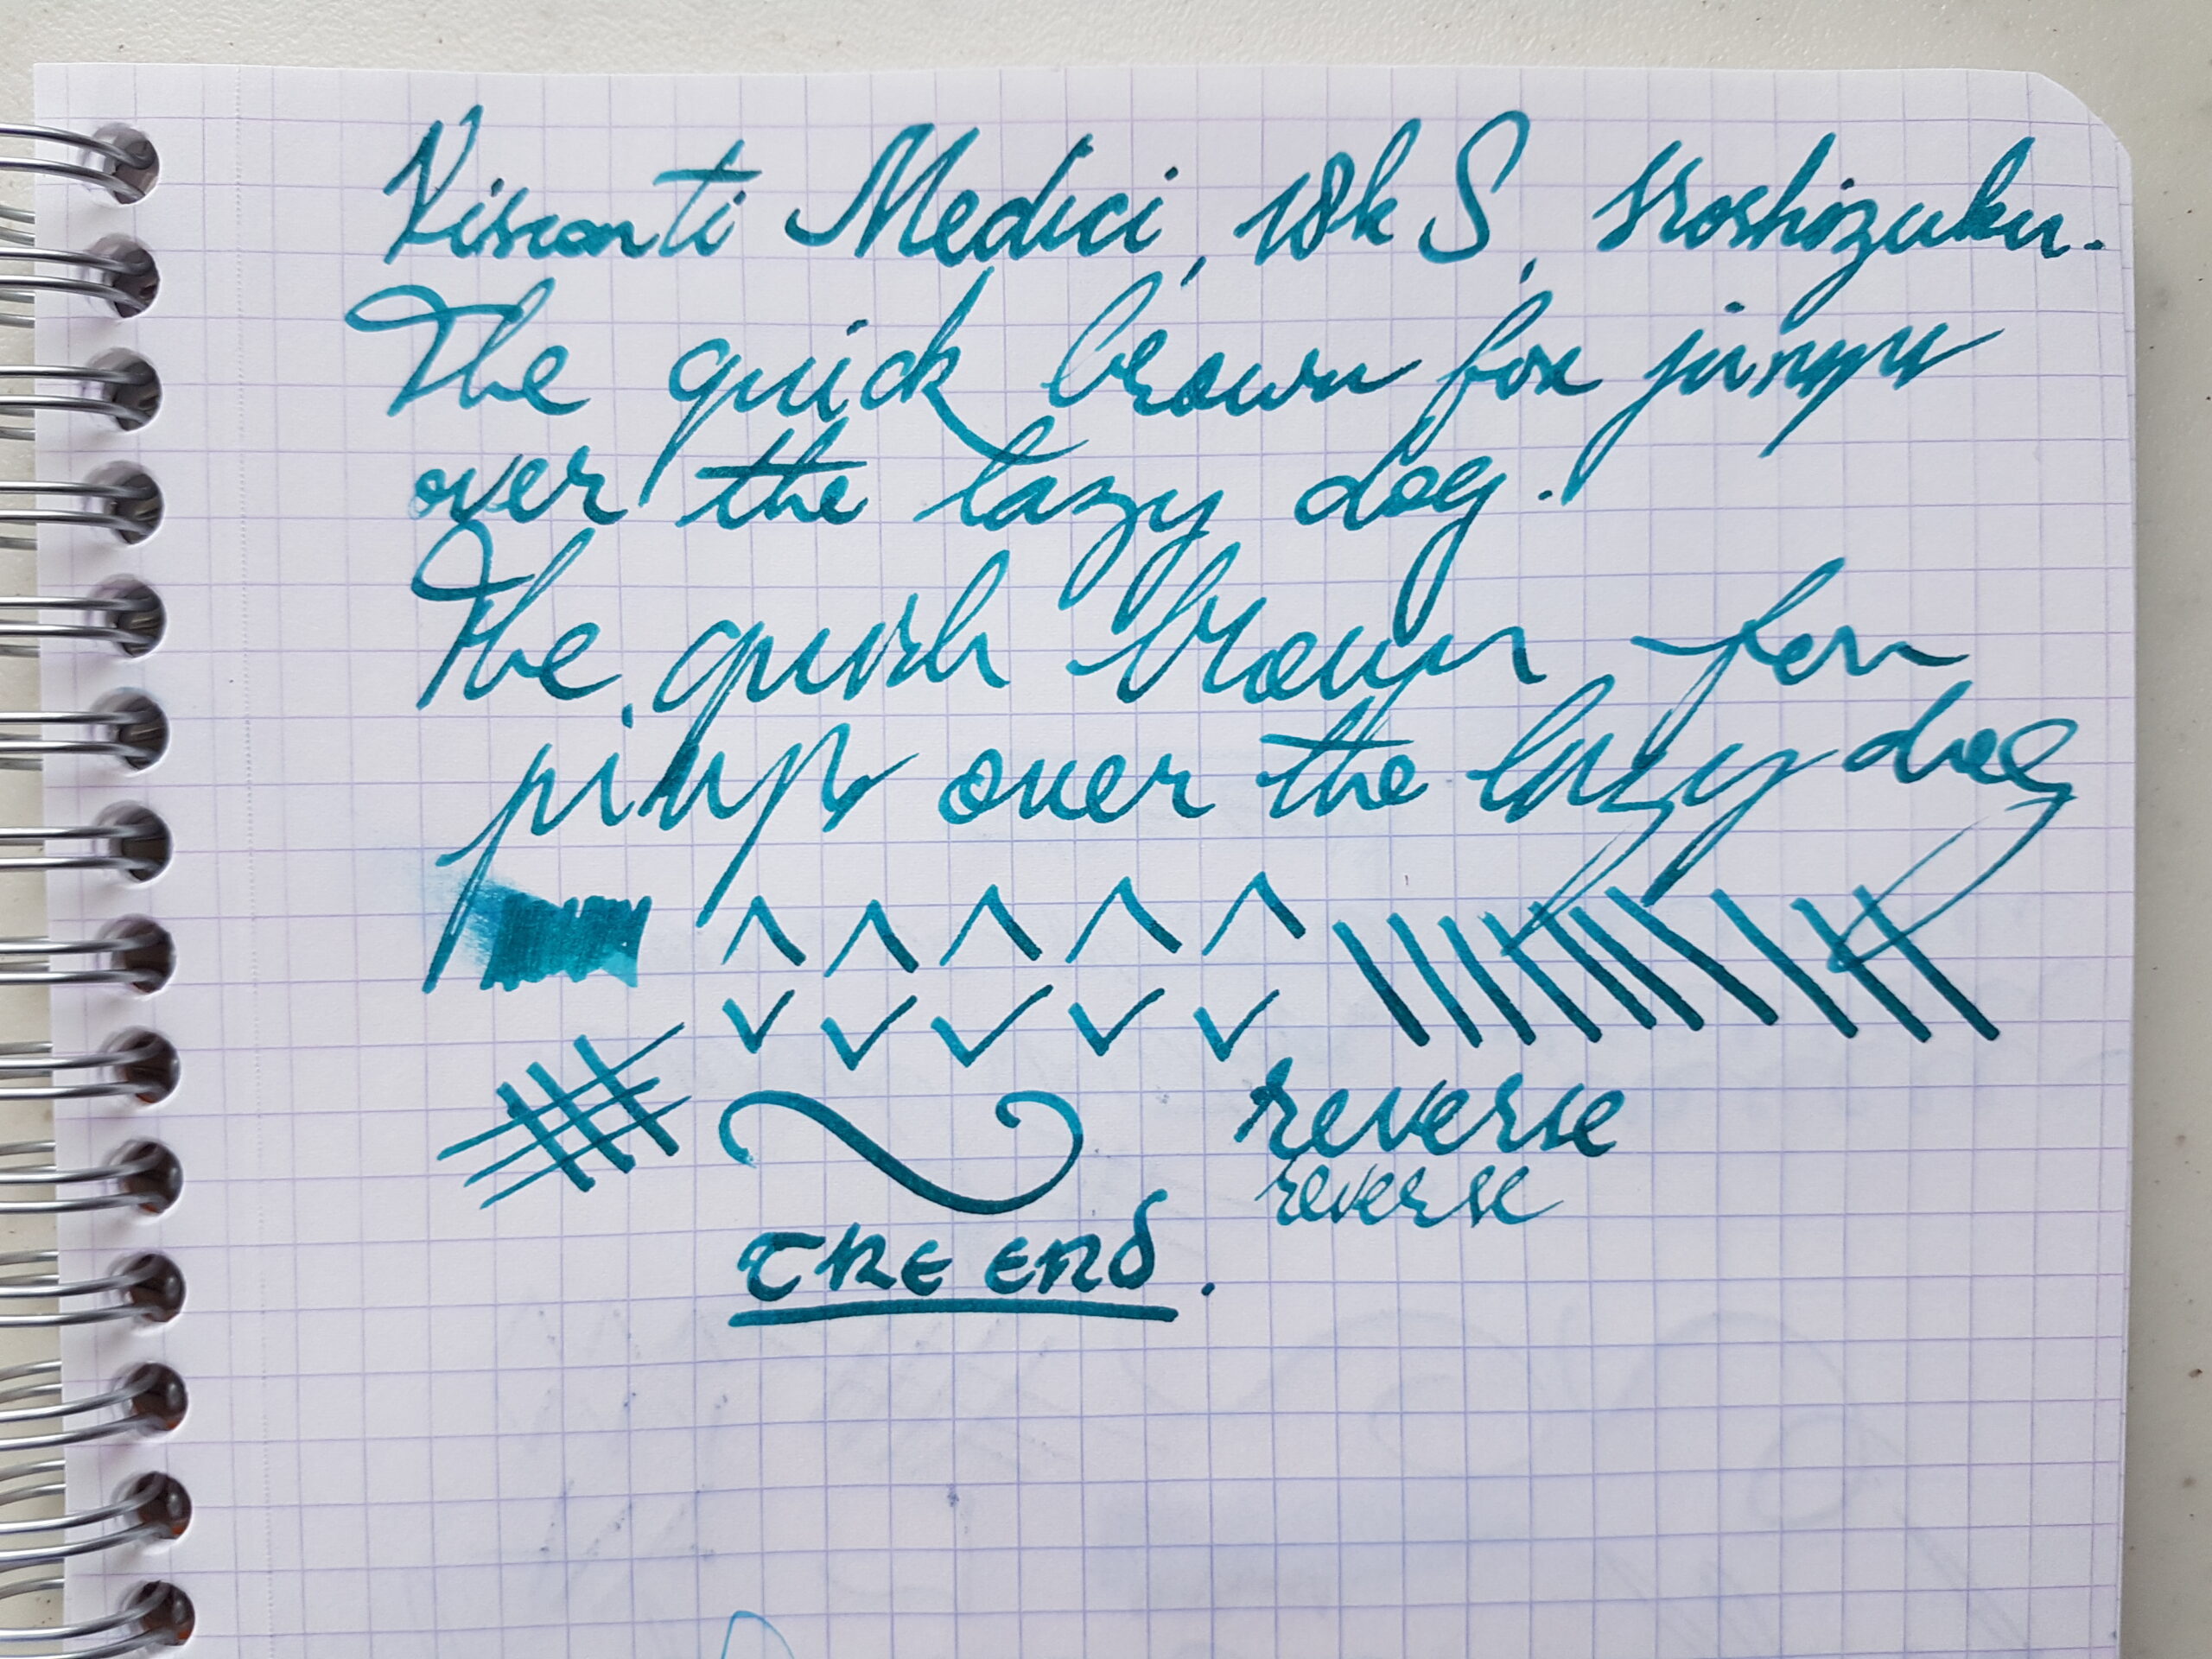 Visconti Medici, 18k S, Iroshizuku.
The quick brown fox jumps
over the lazy dog.
The quick brown fox
jumps over the lazy dog
reverse
reverse
THE END.